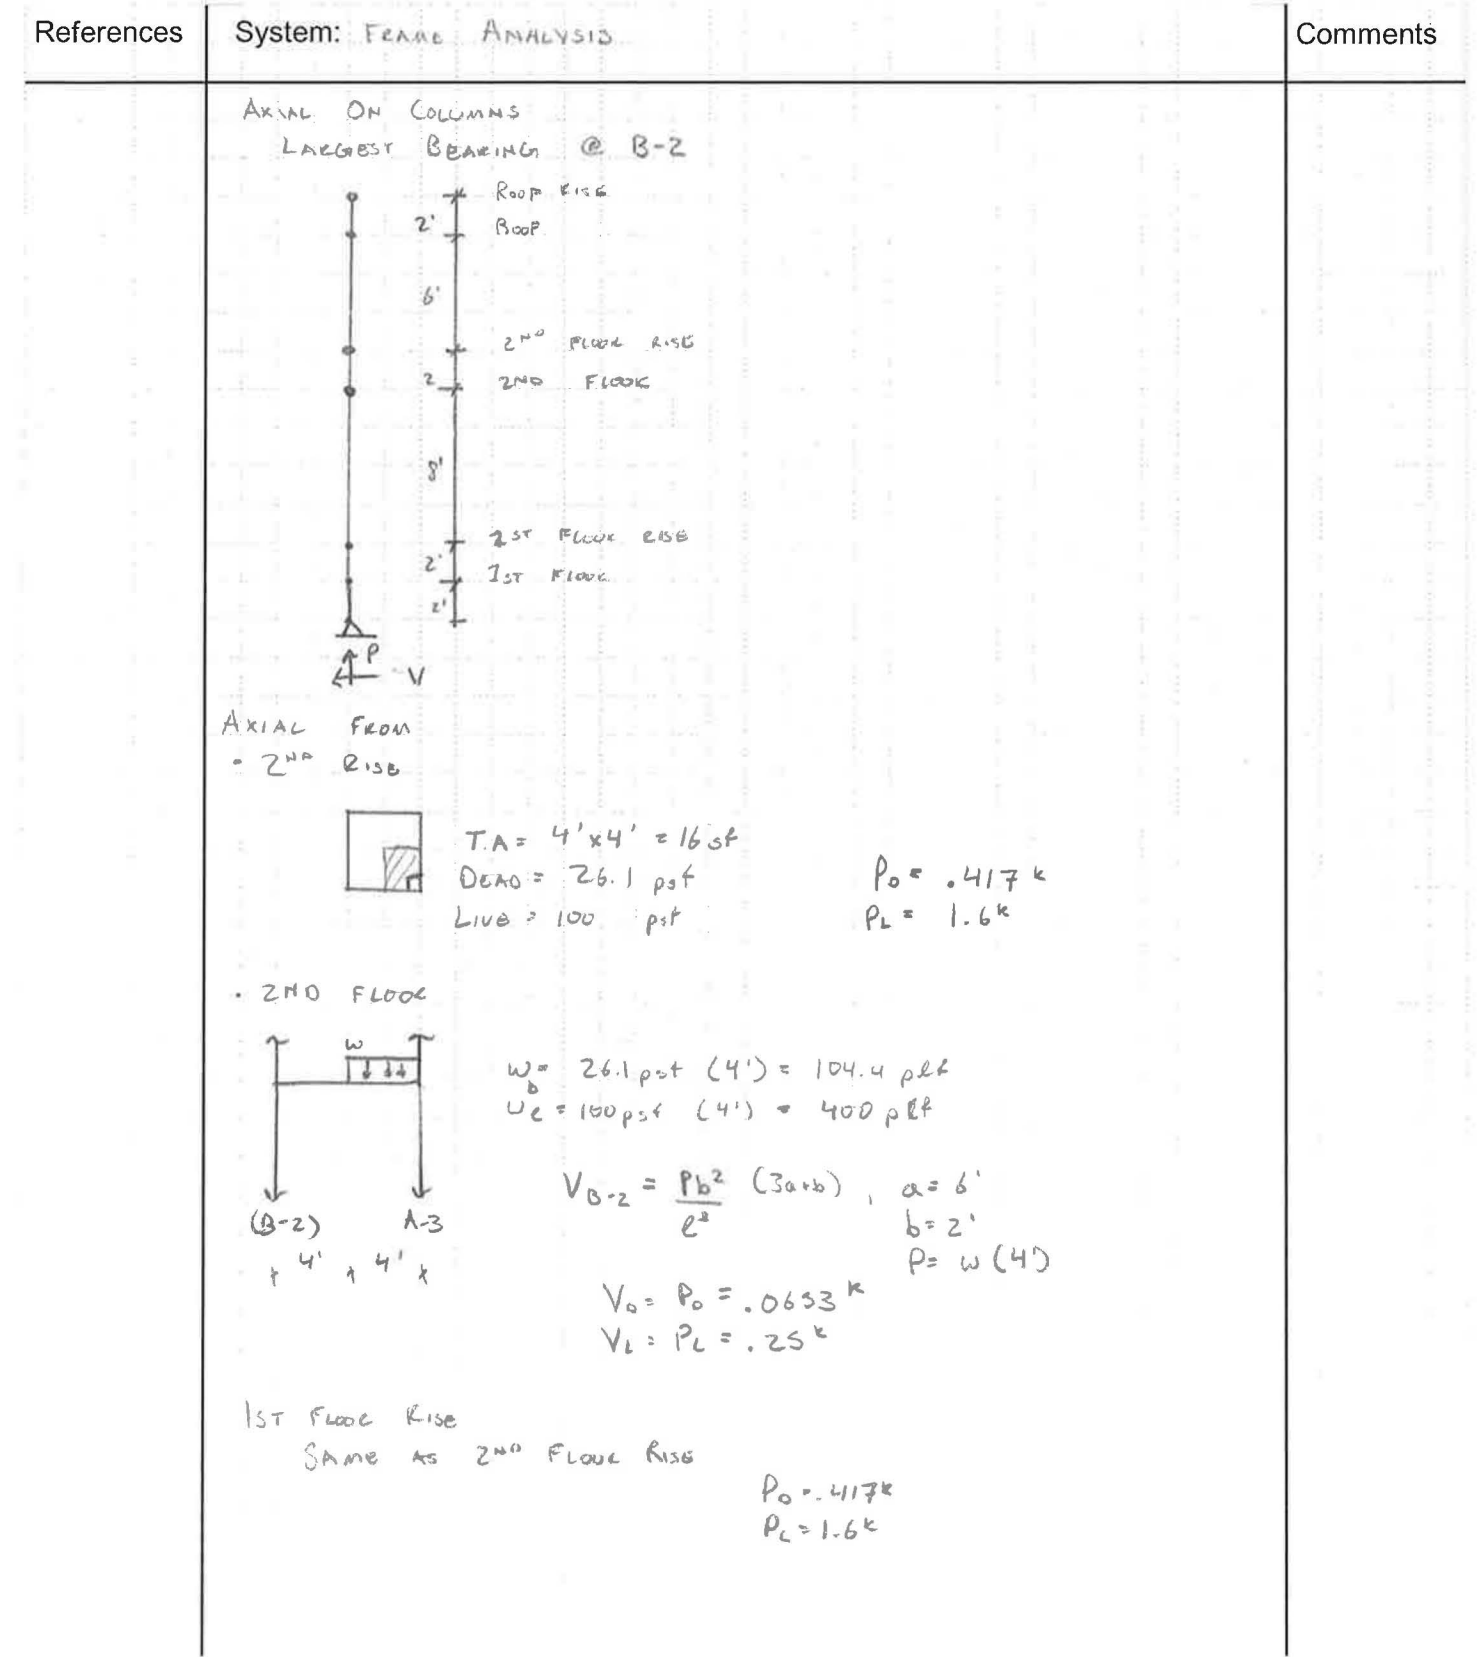 References
System: FRAME ANALYSIS
Comments
AXIAL ON COLUMNS
LARGEST BEARING @ B-2
ROOF RISE
2' ROOF
6'
2ND FLOOR RISE
2 2ND FLOOR
8'
2ST FLOOR RISE
2' 1ST FLOOR
2'
P
V
AXIAL FROM
• 2ND RISE
T.A = 4'x4' = 16 sf
DEAD = 26.1 psf
LIVE = 100 psf
PD = .417 k
PL = 1.6k
• 2ND FLOOR
w
wD = 26.1 psf (4') = 104.4 plf
wL = 100psf (4') = 400 plf
VB-2 = Pb²/l³ (3a+b), a= 6'
b= 2'
P= w(4')
(B-2) A-3
4' 4'
VD = PD = .0653 k
VL = PL = .25 k
1ST FLOOR RISE
SAME AS 2ND FLOOR RISE
PD = .417k
PL = 1.6k